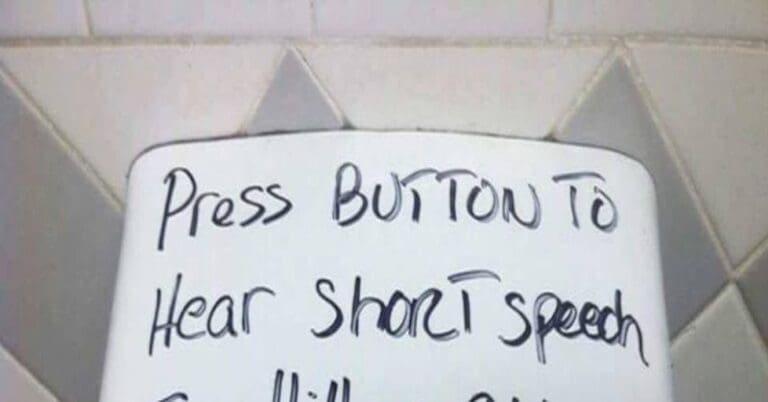 Press BUTTON TO
Hear Short speech